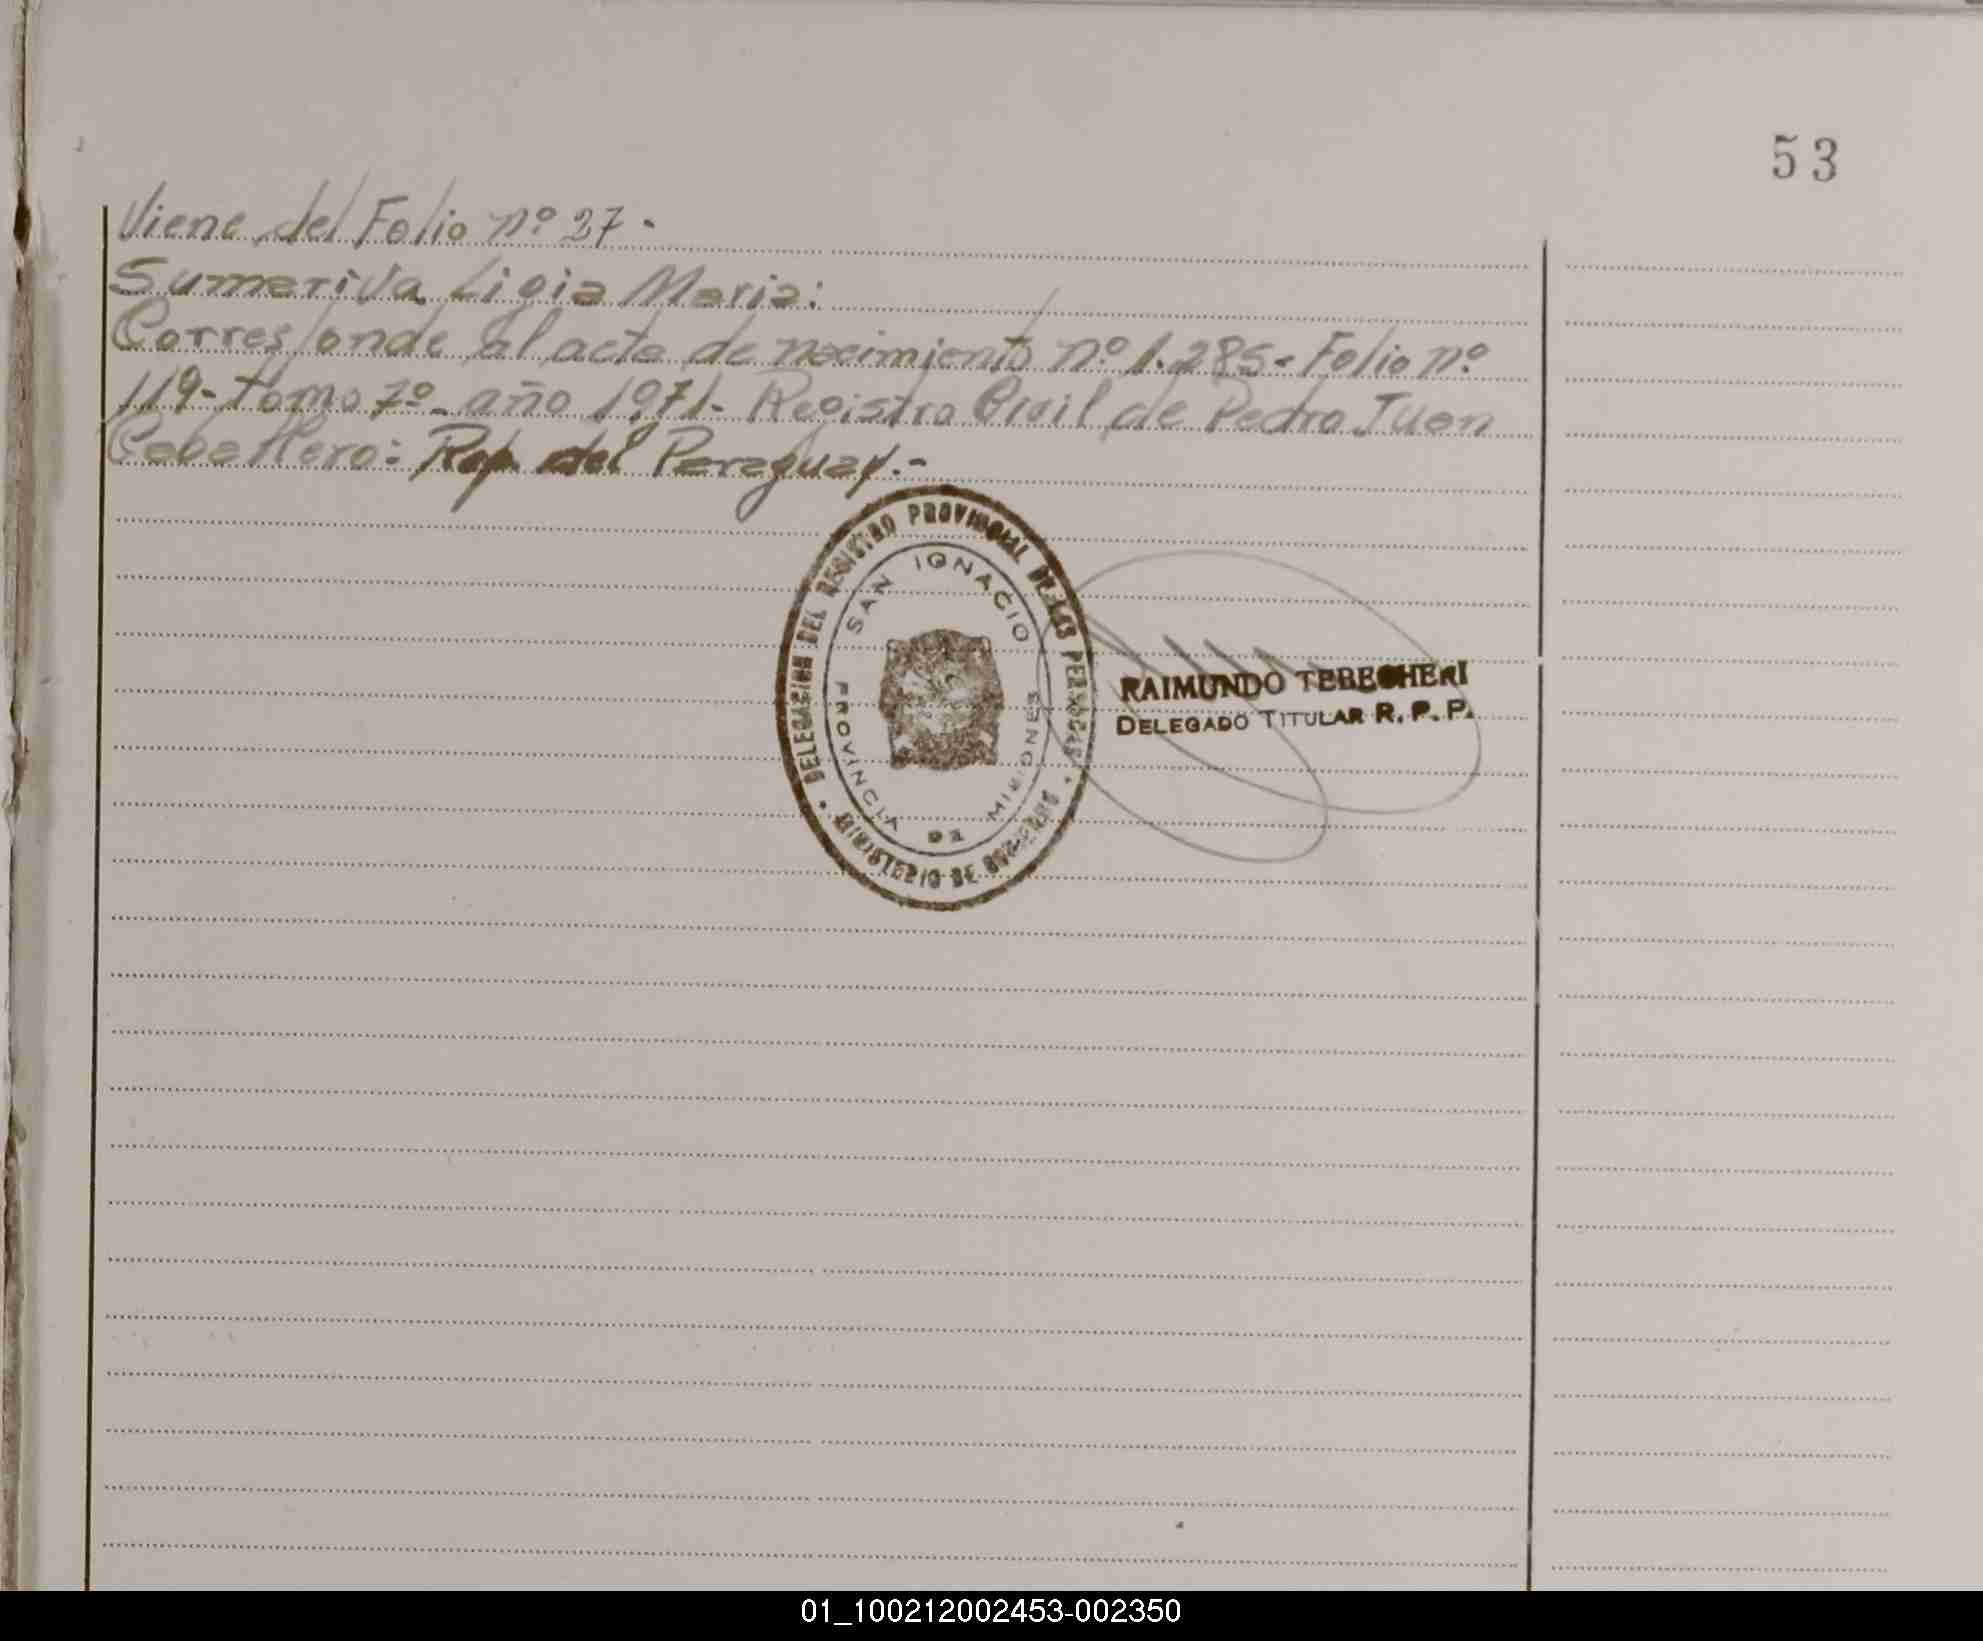 53
Viene del Folio nº 27.
Sumariva Ligia Maria:
Corresponde al acta de nacimiento nº 1.285- Folio nº
119- tomo 7º- año 1971- Registro Civil de Pedro Juan
Caballero: Rep. del Paraguay.-
DELEGACION DEL REGISTRO PROVINCIAL DE LAS PERSONAS
SAN IGNACIO
PROVINCIA DE MISIONES
MINISTERIO DE GOBIERNO
RAIMUNDO TEBECHERI
DELEGADO TITULAR R. P. P.
01_100212002453-002350